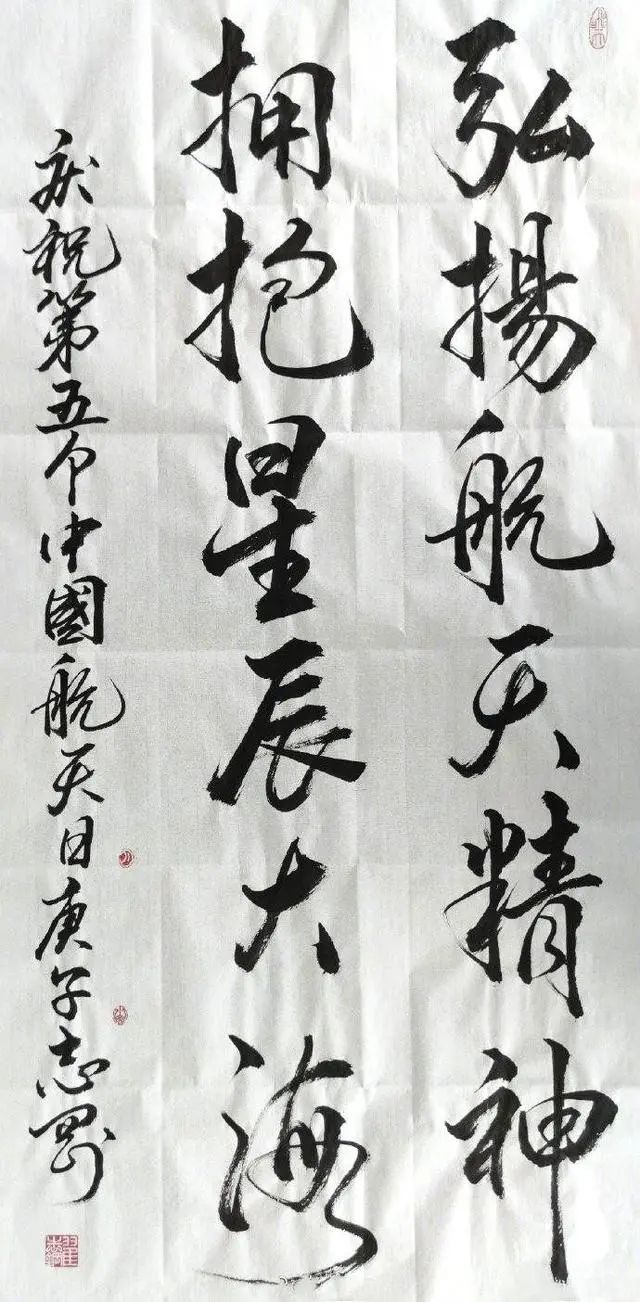 弘揚航天精神
拥抱星辰大海
庆祝第五个中國航天日庚子志刚